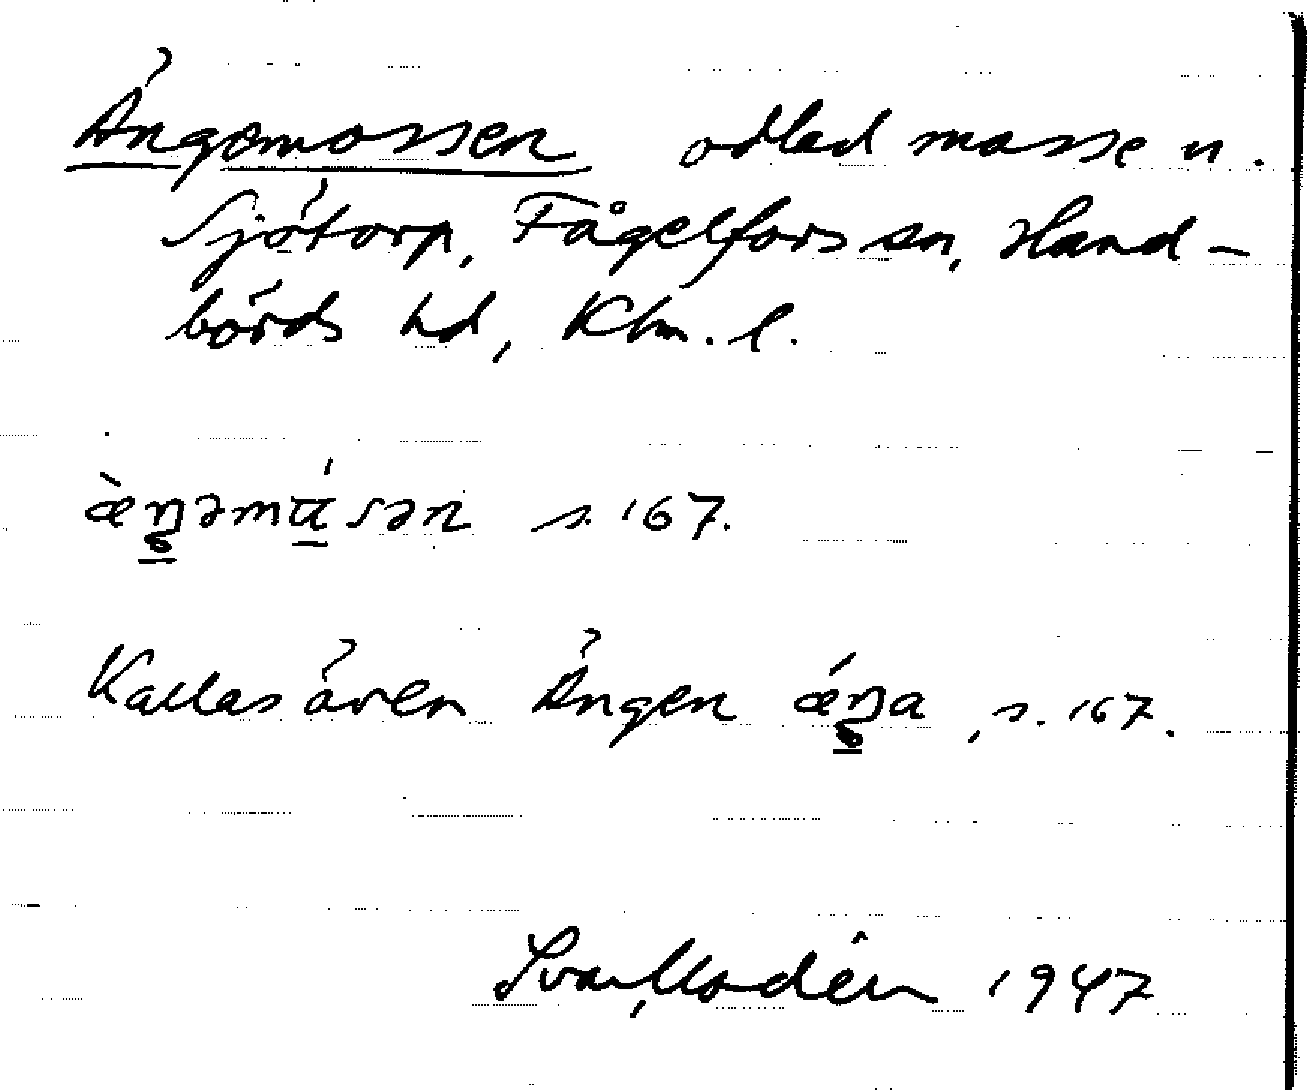 Ängemossen odlad mosse n.
Sjötorp, Fågelfors sn, Hand-
börds hd, Klm. l.
æ̀ŋəmɑ́sən s. 167.
Kallas även Ängen ǽŋa, s. 167.
1947